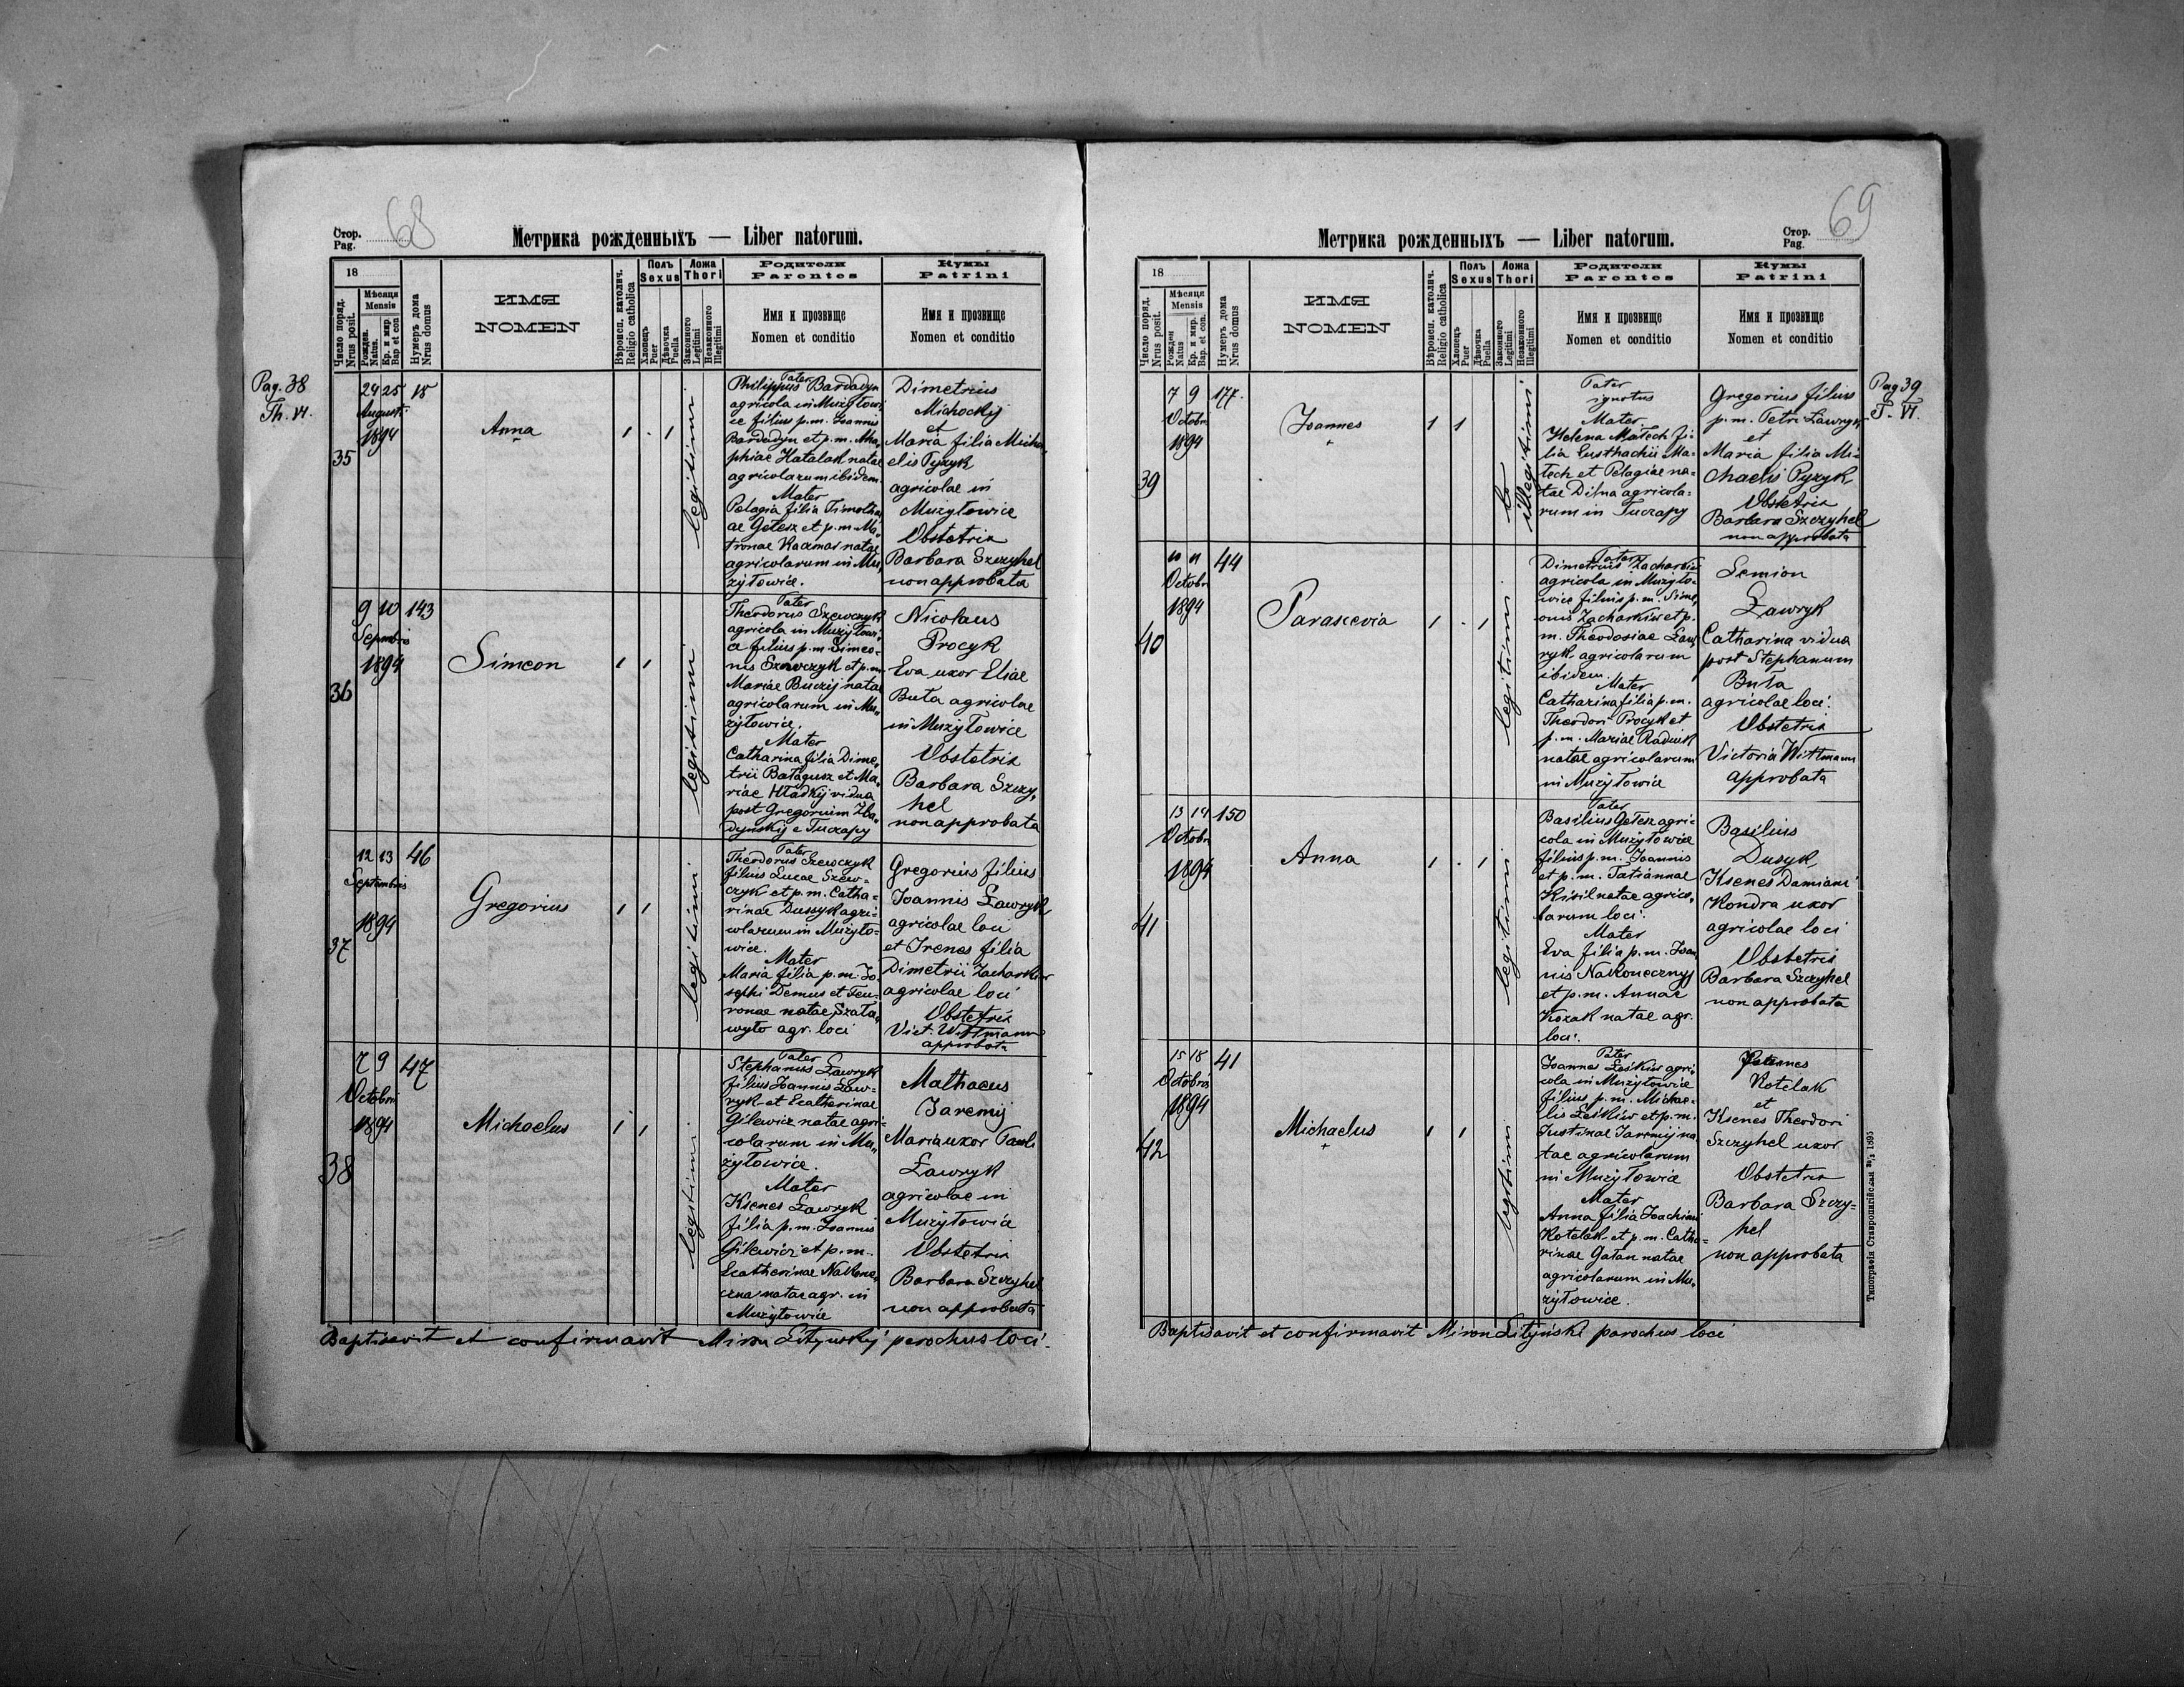 Стор.
Pag.
68
Метрика рожденныхъ — Liber natorum.
18
Число поряд.
Nrus posit.
Мѣсяця
Mensis
Рожден.
Natus
Кр. и мир.
Bap et con
Нумеръ дома
Nrus domus
ИМЯ
NOMEN
Вѣроисп. католич.
Religio catholica
Полъ
Sexus
Хлопець
Puer
Дѣвочка
Puella
Ложа
Thori
Законного
Legitimi
Незаконного
Illegitimi
Родители
Parentes
Имя и прозвище
Nomen et conditio
Кумы
Patrini
Имя и прозвище
Nomen et conditio
Pag. 38
Th. VI.
35
24 25
August.
1894
18
Anna
legitimi
Pater
Philippus Bardadyn
agricola in Mużyłowi
ce filius p.m. Joannis
Bardadyn et p.m. Aha
phiae Hatalak natae
agricolarum ibidem
Mater
Pelagia filia Timothe
ae Getesz et p.m. Ma
tronae Kaczmar natae
agricolarum in Mu
żyłowice.
Dimetrius
Michockij
et
Maria filia Micha
elis Pyzyk
agricolae in
Mużyłowice
Obstetrix
Barbara Szczyhel
non approbata
36
9 10
Septembris
1894
143
Simeon
legitimi
Pater
Theodorus Szewczyk
agricola in Mużyłowi
ce filius p.m. Simeo
nis Szewczyk et p.m.
Mariae Buczij natae
agricolarum in Mu
żyłowice.
Mater
Catharina filia Dime
trii Bałagusz et Ma
riae Hładkij vidua
post Gregorium Zba
dyńskij e Tuczapy
Nicolaus
Procyk
Eva uxor Eliae
Buta agricolae
in Mużyłowice
Obstetrix
Barbara Szczy
hel
non approbata
37
12 13
Septembris
1894
46
Gregorius
legitimi
Pater
Theodorus Szewczyk
filius Lucae Szew=
czyk et p.m. Catha=
rinae Dussyk agri=
colarum in Mużyło=
wice.
Mater
Maria filia p.m. Jo
sephi Demus et Feu
ronae natae Szała
wyło agr. loci
Gregorius filius
Joannis Ławryk
agricolae loci
et Irenes filia
Dimetrii Zacharkiw
agricolae loci
Obstetrix
Vict. Wittmann
approbata
38
7 9
Octobris
1894
47
Michaelus
legitimi
Pater
Stephanus Ławryk
filius Joannis Ław=
ryk et Ecatherinae
Gilewicz natae agri
colarum in Mu
żyłowice.
Mater
Ksenes Ławryk
filia p.m. Joannis
Gilewicz et p.m.
Ecatherinae Nakone
czna natae agr. in
Mużyłowice
Mathaeus
Jaremij
Maria uxor Pauli
Ławryk
agricolae in
Mużyłowice
Obstetrix
Barbara Szczyhel
non approbata
Baptisavit et confirmavit Miron Lityńskij parochus loci.
Стор.
Pag.
69
Метрика рожденныхъ — Liber natorum.
18
Число поряд.
Nrus posit.
Мѣсяця
Mensis
Рожден
Natus
Кр. и мир.
Bap. et con.
Нумеръ дома
Nrus domus
ИМЯ
NOMEN
Вѣроисп. католич.
Religio catholica
Полъ
Sexus
Хлопець
Puer
Дѣвочка
Puella
Ложа
Thori
Законного
Legitimi
Незаконного
Illegitimi
Родители
Parentes
Имя и прозвище
Nomen et conditio
Кумы
Patrini
Имя и прозвище
Nomen et conditio
Pag 39
T. VI.
39
7 9
Octobr
1894
177.
Joannes
illegitimi
Pater
ignotus
Mater
Helena Małech fi=
lia Eusthachii Ma=
łech et Pelagiae na=
tae Dilna agricola=
rum in Tuczapy
Gregorius filius
p.m. Petri Ławryk
et
Maria filia Mi=
chaelis Pyzyk
Obstetrix
Barbara Szczyhel
non approbata
40
10 11
Octobr
1894
44
Parascevia
legitimi
Pater
Dimetrius Zacharkiw
agricola in Mużyło=
wice filius p.m. Sime
onis Zacharkiw et p.
m. Theodosiae Ław
ryk agricolarum
ibidem.
Mater
Catharina filia p.m.
Theodori Procyk et
p.m. Mariae Radiuk
natae agricolarum
in Mużyłowice
Semion
Ławryk
Catharina vidua
post Stephanum
Buta
agricolae loci.
Obstetrix
Victoria Wittmann
approbata
41
13 14
Octobr
1894
150
Anna
legitimi
Pater
Basilius Getesz agri=
cola in Mużyłowice
filius p.m. Joannis
et p.m. Tatiannae
Kisil natae agrico
larum loci.
Mater
Eva filia p.m. Joan
nis Nakonecznyj
et p.m. Annae
Kozak natae agr.
loci.
Basilius
Dusyk
Ksenes Damiani
Kondra uxor
agricolae loci
Obstetrix
Barbara Szczyhel
non approbata
42
15 18
Octobris
1894
41
Michaelus
legitimi
Pater
Joannes Leśkiw agri
cola in Mużyłowice
filius p.m. Michae=
lis Leśkiw et p.m.
Justinae Jaremij na
tae agricolarum
in Mużyłowice
Mater
Anna filia Joachimi
Kotelak et p.m. Catha=
rinae Gatan natae
agricolarum in Mu
żyłowice.
Joannes
Kotelak
et
Ksenes Theodori
Szczyhel uxor
Obstetrix
Barbara Szczy=
hel
non approbata
Baptisavit et confirmavit Miron Lityński parochus loci
Типографія Ставропигійская 1895